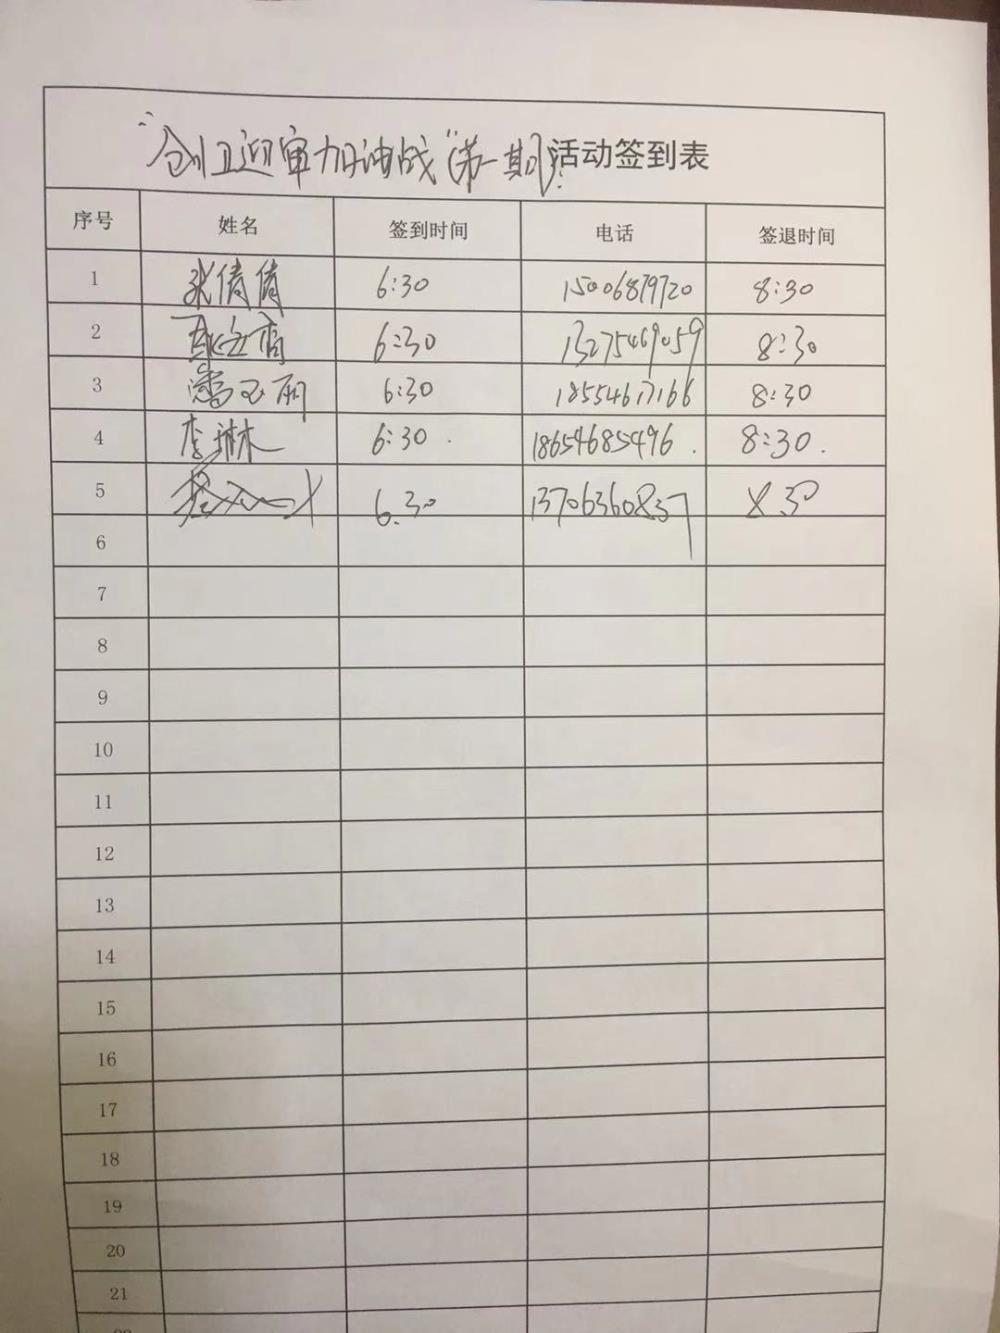 "创卫迎审加油战"(第一期)活动签到表
序号 姓名 签到时间 电话 签退时间
1 张倩倩 6:30 15006879720 8:30
2 6:30 13275469059 8:30
3 潘玉丽 6:30 18554617166 8:30
4 李琳 6:30 18654685496 8:30
5 6:30 13706360837 8:30
6
7
8
9
10
11
12
13
14
15
16
17
18
19
20
21
22